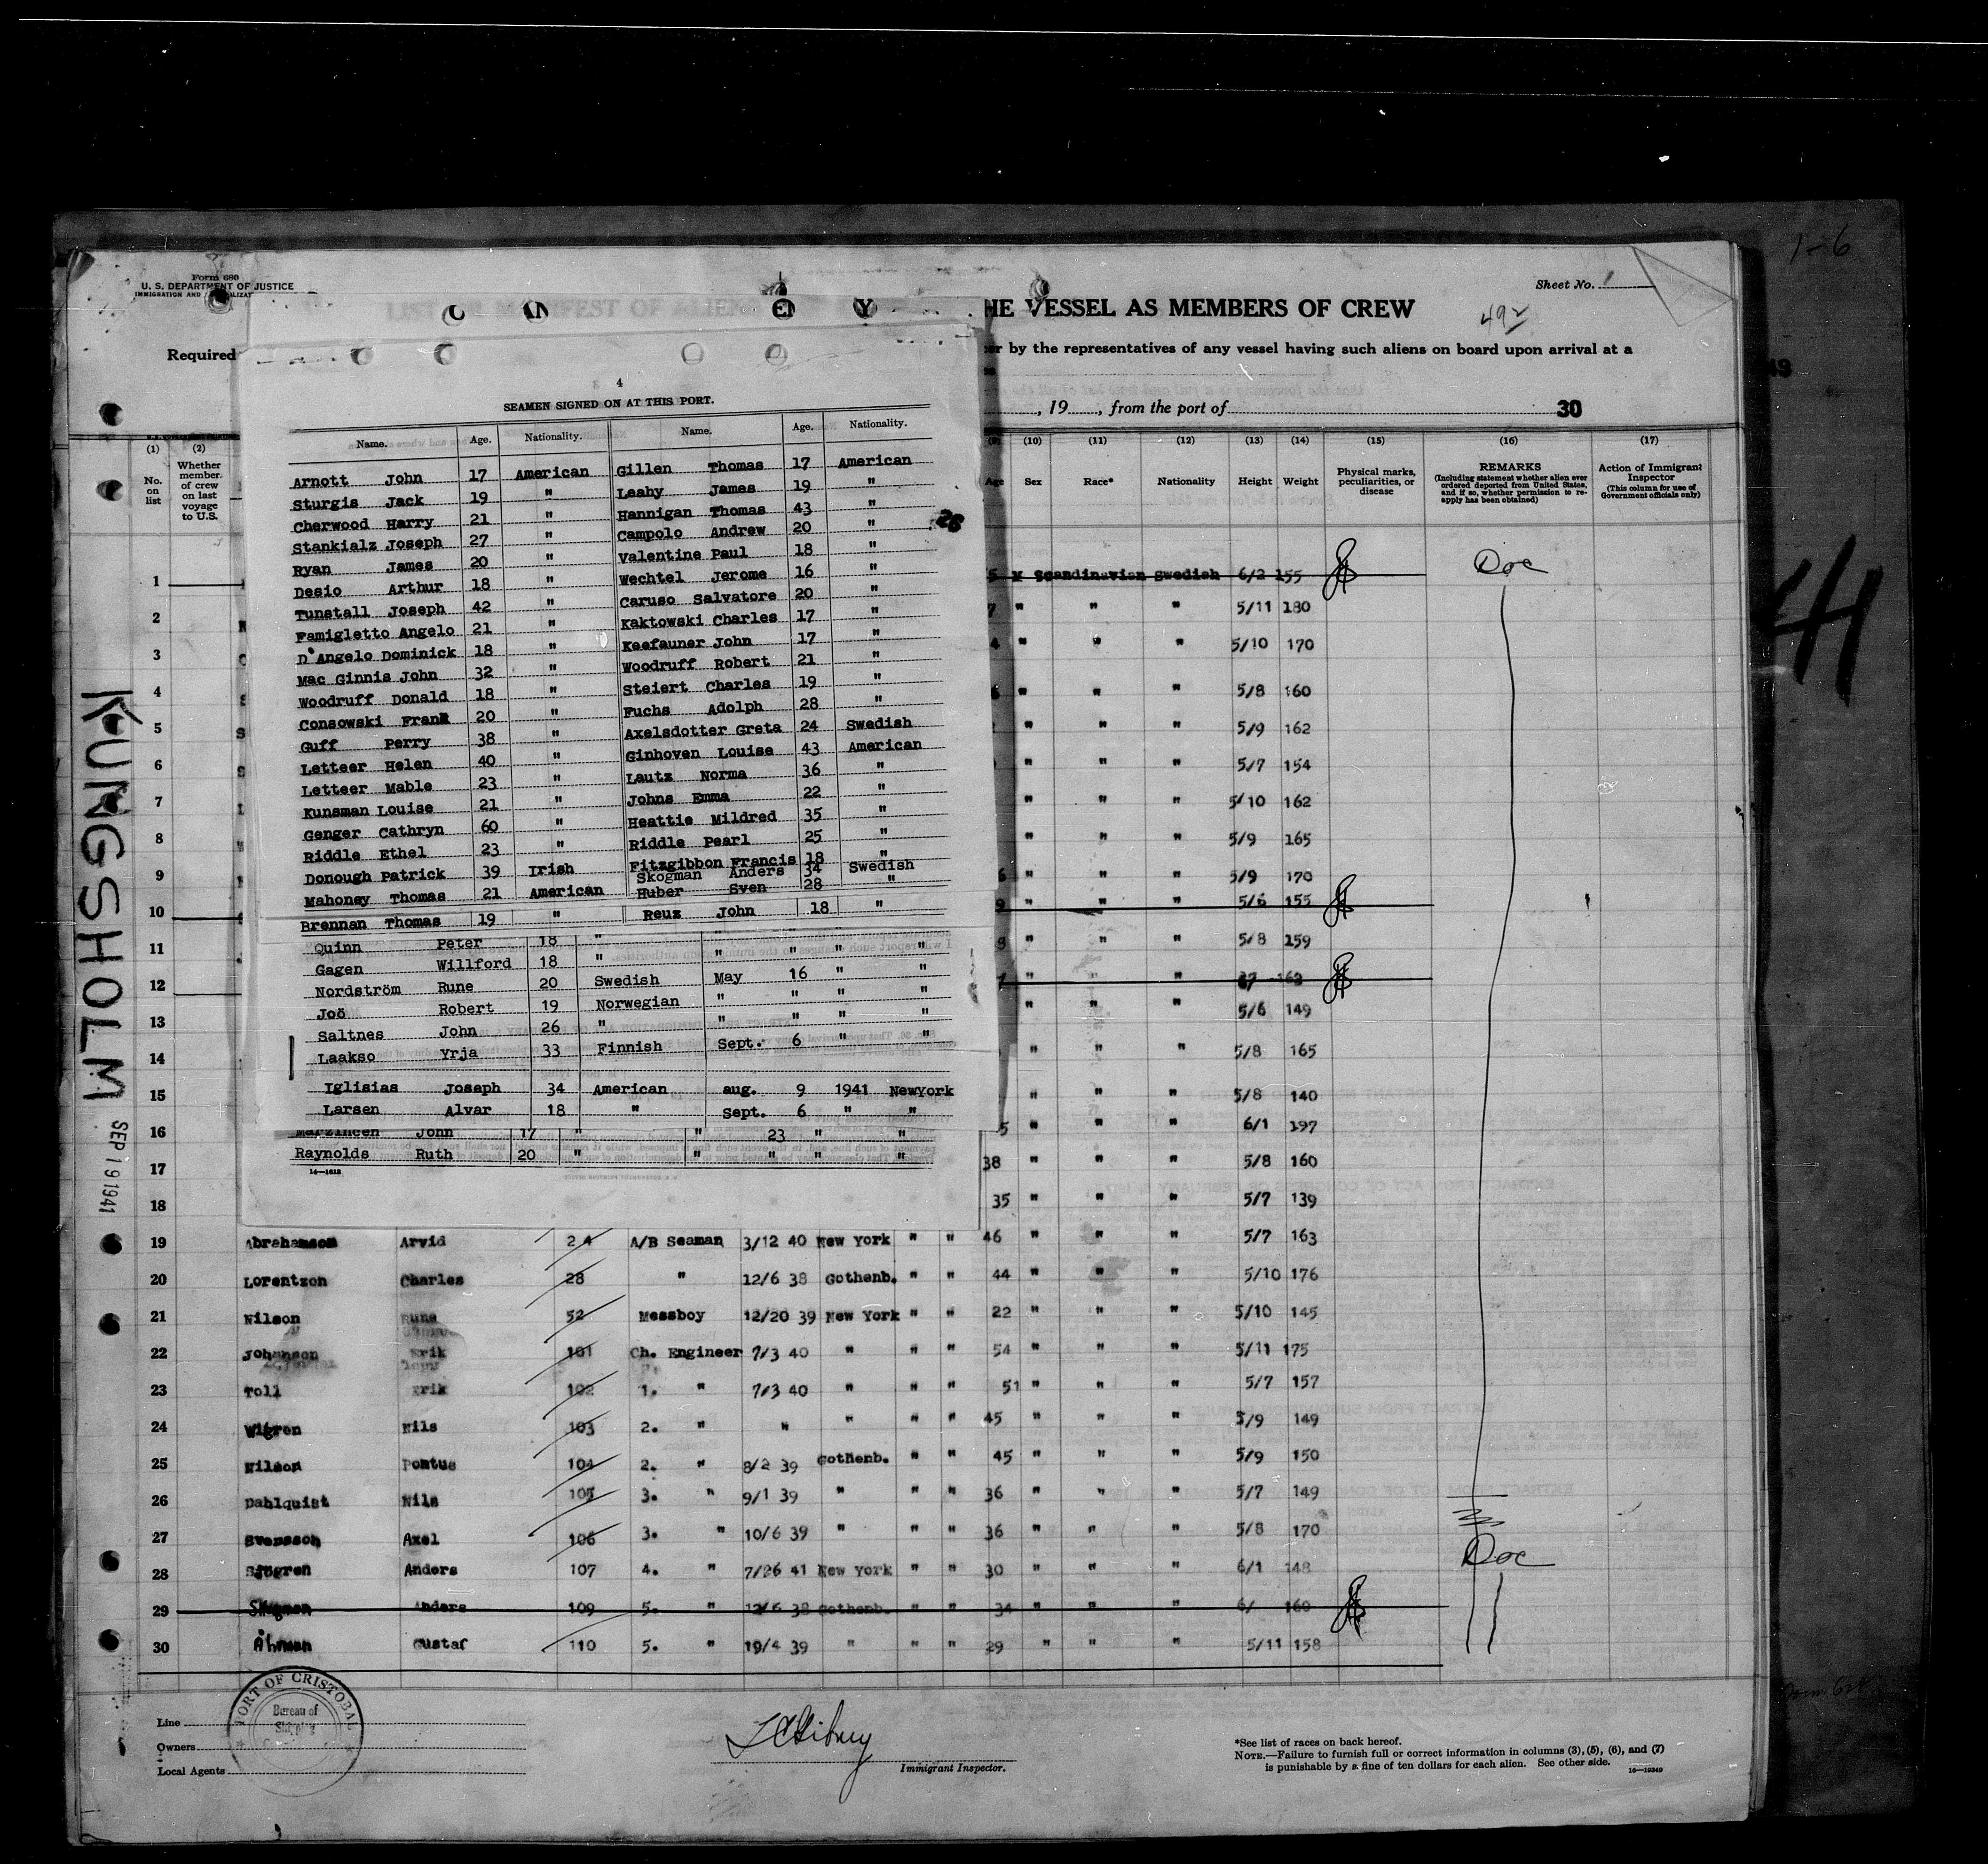 1-6
Form 680
U. S. DEPARTMENT OF JUSTICE
IMMIGRATION AND
Sheet No. 1
LIST OR MANIFEST OF ALIEN
HE VESSEL AS MEMBERS OF CREW
492
Required
by the representatives of any vessel having such aliens on board upon arrival at a
, 19 , from the port of
30
4
SEAMEN SIGNED ON AT THIS PORT.
Name. Age. Nationality. Name. Age. Nationality.
Arnott John 17 American Gillen Thomas 17 American
Sturgis Jack 19 " Leahy James 19 "
Cherwood Harry 21 " Hannigan Thomas 43 "
Stankialz Joseph 27 " Campolo Andrew 20 "
Ryan James 20 " Valentine Paul 18 "
Desio Arthur 18 " Wechtel Jerome 16 "
Tunstall Joseph 42 " Caruso Salvatore 20 "
Famigletto Angelo 21 " Kaktowski Charles 17 "
D'Angelo Dominick 18 " Keefauner John 17 "
Mac Ginnis John 32 " Woodruff Robert 21 "
Woodruff Donald 18 " Steiert Charles 19 "
Consowski Frank 20 " Fuchs Adolph 28 "
Guff Perry 38 " Axelsdotter Greta 24 Swedish
Letteer Helen 40 " Ginhoven Louise 43 American
Letteer Mable 23 " Lautz Norma 36 "
Kunsman Louise 21 " Johns Emma 22 "
Genger Cathryn 60 " Heattie Mildred 35 "
Riddle Ethel 23 " Riddle Pearl 25 "
Donough Patrick 39 Irish Fitzgibbon Francis 18 "
Skogman Anders 34 Swedish
Mahoney Thomas 21 American Huber Sven 28 "
Brennan Thomas 19 " Reuz John 18 "
Quinn Peter 18 " " " " "
Gagen Willford 18 " " " " "
Nordström Rune 20 Swedish May 16 " "
Joö Robert 19 Norwegian " " " "
Saltnes John 26 " " " " "
Laakso Yrja 33 Finnish Sept. 6 " "
Iglisias Joseph 34 American aug. 9 1941 NewYork
Larsen Alvar 18 " Sept. 6 " "
John 17 " " 23 " "
Raynolds Ruth 20 " " " " "
16—1613
28
(1) (2) (9) (10) (11) (12) (13) (14) (15) (16) (17)
No. on list
Whether member of crew on last voyage to U.S.
Age Sex Race* Nationality Height Weight
Physical marks, peculiarities, or disease
REMARKS
(Including statement whether alien ever ordered deported from United States, and if so, whether permission to reapply has been obtained)
Action of Immigrant Inspector
(This column for use of Government officials only)
1 5 M Scandinavian Swedish 6/2 155 Doc
2 7 " " " 5/11 180
3 4 " " " 5/10 170
4 6 " " " 5/8 160
5 " " " 5/9 162
6 " " " 5/7 154
7 " " " 5/10 162
8 " " " 5/9 165
9 6 " " " 5/9 170
10 9 " " 5/6 155
11 8 " " " 5/8 159
12 " " "
13 " " " 5/6 149
14 " " " 5/8 165
15 " " " 5/8 140
16 5 " " " 6/1 197
17 38 " " " 5/8 160
18 35 " " " 5/7 139
19 Abrahamson Arvid 24 A/B Seaman 3/12 40 New York " " 46 " " " 5/7 163
20 Lorentzon Charles 28 " 12/6 38 Gothenb. " " 44 " " " 5/10 176
21 Nilson Rune 52 Messboy 12/20 39 New York " " 22 " " " 5/10 145
22 Johanson Erik 101 Ch. Engineer 7/3 40 " " " 54 " " " 5/11 175
23 Toll Erik 102 1. " 7/3 40 " " " 51 " " " 5/7 157
24 Wigren Nils 103 2. " " " " " 45 " " " 5/9 149
25 Nilson Pontus 104 2. " 8/2 39 Gothenb. " " 45 " " " 5/9 150
26 Dahlquist Nils 105 3. " 9/1 39 " " " 36 " " " 5/7 149
27 Svensson Axel 106 3. " 10/6 39 " " " 36 " " " 5/8 170
28 Sjögren Anders 107 4. " 7/26 41 New York " " 30 " " " 6/1 148 Doc
29 Skogman Anders 109 5. " 12/6 38 Gothenb. " " 34 " " " 6/ 160
30 Åhman Gustaf 110 5. " 19/4 39 " " " 29 " " " 5/11 158
KUNGSHOLM
SEP 19 1941
41
PORT OF CRISTOBAL
Bureau of
Line
Owners
Local Agents
Immigrant Inspector.
*See list of races on back hereof.
NOTE.—Failure to furnish full or correct information in columns (3), (5), (6), and (7)
is punishable by a fine of ten dollars for each alien. See other side.
16—19349